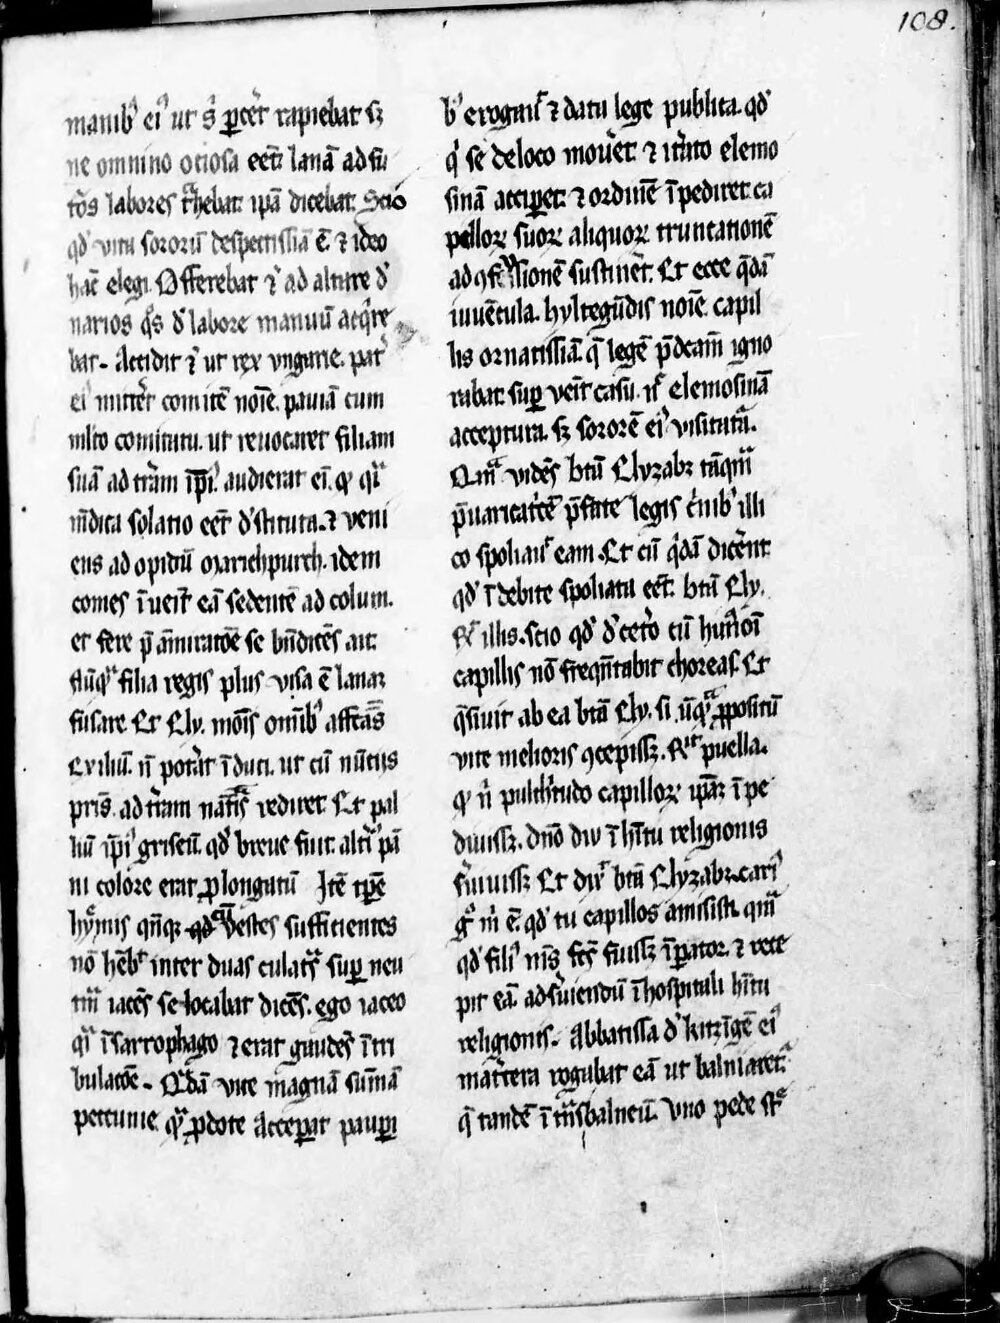 108.
manib⁹ ei⁹ ut s͛ ꝑcẽt rapiebat sꝫ
ne omnino ociosa eet lanã ad
labores t͛hebat. ipã dicebat. Scio
qđ vita sororũ despectissiã ẽ ⁊ ideo
hãc elegi. Offerebat ⁊ ad altare đ
narios q͛s đ labore manuũ acq͛re
bat. Accidit ⁊ ut rex vngarie. pat͛
ei⁹ mittet͛ comitẽ noĩe. pauiã cum
mlto comitatu. ut reuocaret filiam
suã ad t͛ram ip̃i⁹. audierat eĩ. ꝙ q͛
m̃dica solatio eet͛ đstituta. ⁊ veni
ens ad opidũ Marichpurch. idem
comes ĩueit͛ eã sedentẽ ad colum.
et fere p̃ am̃iratõe se bñdicẽs ait.
nũq͛ filia regis plus visa ẽ lanaꝫ
fusare Et Ely. mõis omĩb⁹ affectãs
Exiliũ. ñ pot͛at ĩduci. ut cũ nũtiis
pris̃. ad t͛ram natis͛ rediret Et pal
liũ ip̃i⁹ griseũ. qđ breue fuit. alt͛i⁹ pã
ni colore erat ꝓlongatũ Itẽ tp̃e
hyemis qñqꝫ vestes sufficientes
nõ hẽb͛ inter duas culat͛s suꝑ ⁿeu
tm̃ iacẽs se locabat dicẽs. ego iaceo
q͛ ĩ sarcophago ⁊ erat gaudẽs ĩ tri
bulatõe. Q͛dã vice magnã sum̃ã
peccunie. q͛ ꝓ dote acceꝑat pauꝑi
b⁹ erogauit͛ ⁊ data lege publica. qđ
q͛ se de loco mouet͛ ⁊ it͛ato elemo
sinã acciꝑet. ⁊ ordinẽ ĩpediret. ca
pelloꝝ suoꝝ aliquoꝝ truncationẽ
ad ꝯfusionẽ sustinet͛. Et ecce q̃dã
iuuẽcula. hyltegũdis noĩe. capil
lis ornatissiã. q̃ legẽ p̃dcam̃ igno
rabat. suꝑ veit͛ casu. ñ elemosinã
acceptura. sꝫ sororẽ ei⁹ visitatu͛.
Q͛m vidẽs btã Elyzabꝫ tãq͛m
p̃uaricat͛cẽ p̃fate legis c͛nib⁹ illi
co spoliau͛ eam. Et cũ q̃dã dicẽnt
qđ ĩdebite spoliata eet͛. btã Ely.
R͛ illis. scio qđ đ cet͛o cũ hui⁹oĩ
capillis nõ freqñtabit choreas. Et
q̃siuit ab ea btã Ely. si ũq͛ ꝓpositũ
vite melioris ꝯcepissꝫ. R͛t puella.
ꝙ ñ pulch͛tudo capilloꝝ ipaꝫ ĩpe
diuissꝫ. dño diu ĩ hĩtu religionis
s͛uiuissꝫ Et dix͛ btã Elyzabꝫ. cari⁹
g͛ m̃ ẽ. qđ tu capillos amisisti. q͛m
qđ fili⁹ m̃s fc̃s fuissꝫ ĩꝑator. ⁊ rece
pit eã. ad s͛uiendũ ĩ hospitali hĩtu
religionis. Abbatissa đ kitzĩgẽ ei⁹
mat͛tera rogabat eã ut balniaret͛.
q̃ tandẽ ĩt͛ns balneũ. Vno pede